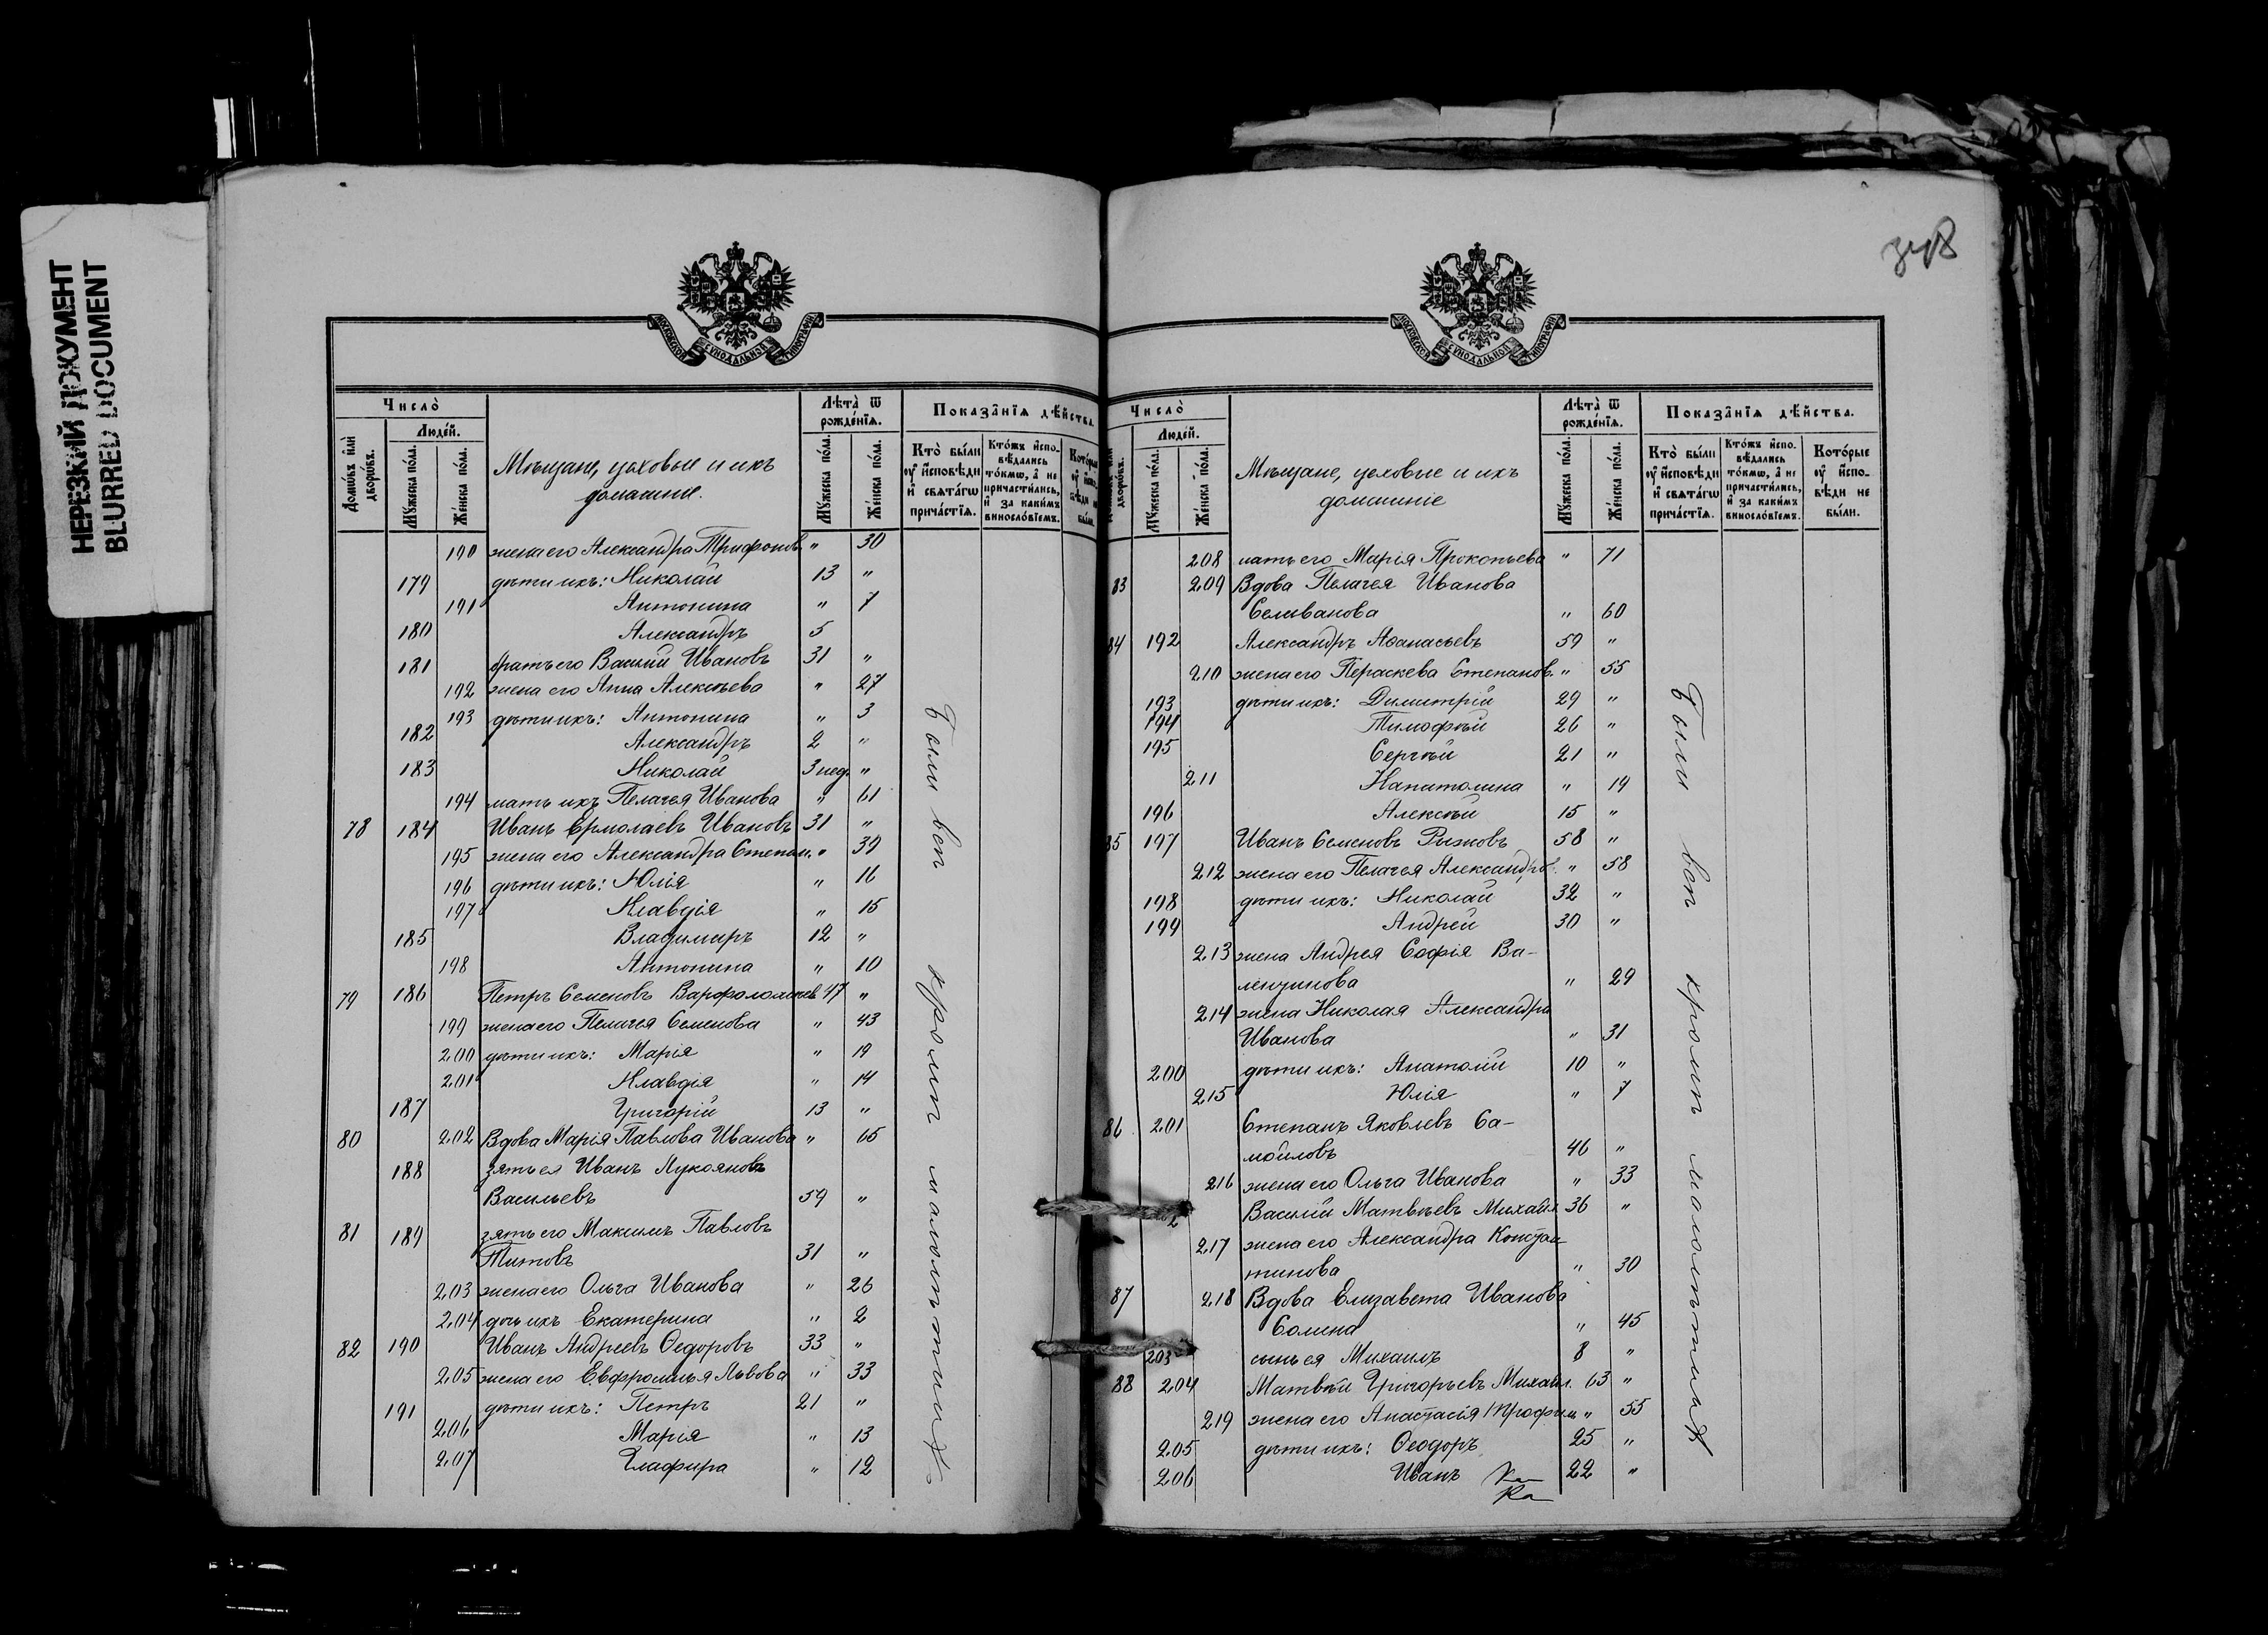 НЕРЕЗКИЙ ДОКУМЕНТ
BLURRED DOCUMENT
МОСКОВСКОЙ СѴНОДАЛЬНОЙ ТИПОГРАФІИ
Число̀
Людéй.
Домѡ́въ и҆лѝ дворѡ́въ.
Мꙋ́жеска по́ла.
Же́нска по́ла.
Мѣщане, цеховые и ихъ
домашніе.
Лѣта̀ ѿ рожде́нїѧ.
Мꙋ́жеска по́ла.
Же́нска по́ла.
Показа̑нїѧ дѣ́йства.
Кто̀ бы́ли ᲂу҆ и҆сповѣ́ди и҆ свѧта́гѡ прича́стїѧ.
Кто́жъ и҆сповѣ́дались то́кмѡ, а҆ не причасти́лись, и҆ за каки́мъ винослóвїемъ.
190 жена его Александра Трифонов. " 30
179 дѣти ихъ: Николай 13 "
191 Антонина " 7
180 Александръ 5
181 братъ его Василій Ивановъ 31 "
192 жена его Анна Алексѣева " 27
193 дѣти ихъ: Антонина " 3
182 Александръ 2 "
183 Николай 3 нед. "
194 мать ихъ Пелагея Иванова " 61
78 184 Иванъ Ермолаевъ Ивановъ 31 "
195 жена его Александра Степан. " 39
196 дѣти ихъ: Юлія " 16
197 Клавдія " 15
185 Владимиръ 12 "
198 Антонина " 10
79 186 Петръ Семеновъ Варфоломеевъ 47 "
199 жена его Пелагея Семенова " 43
200 дѣти ихъ: Марія " 19
201 Клавдія " 14
187 Григорій 13 "
80 202 Вдова Марія Павлова Иванова " 65
188 зять ея Иванъ Лукояновъ
Васильевъ 59 "
81 189 зять его Максимъ Павловъ
Титовъ 31 "
203 жена его Ольга Иванова " 26
204 дочь ихъ Екатерина " 2
82 190 Иванъ Андреевъ Ѳедоровъ 33 "
205 жена его Евфросинья Львова " 33
191 дѣти ихъ: Петръ 21 "
206 Марія " 13
207 Глафира " 12
Были всѣ кромѣ малолѣтнихъ
348
МОСКОВСКОЙ СѴНОДАЛЬНОЙ ТИПОГРАФІИ
Число̀
Людéй.
Мꙋ́жеска по́ла.
Же́нска по́ла.
Мѣщане, цеховые и ихъ
домашніе
Лѣта̀ ѿ рожде́нїѧ.
Мꙋ́жеска по́ла.
Же́нска по́ла.
Показа̑нїѧ дѣ́йства.
Кто̀ бы́ли ᲂу҆ и҆сповѣ́ди и҆ свѧта́гѡ прича́стїѧ.
Кто́жъ и҆сповѣ́дались то́кмѡ, а҆ не причасти́лись, и҆ за каки́мъ винослóвїемъ.
Кото́рые ᲂу҆ и҆сповѣ́ди не бы́ли.
208 мать его Марія Прокопьева " 71
83 209 Вдова Пелагея Иванова
Селиванова " 60
84 192 Александръ Аѳанасьевъ 59 "
210 жена его Пераскева Степанов. " 55
193 дѣти ихъ: Димитрій 29 "
194 Тимофѣй 26 "
195 Сергѣй 21 "
211 Капитолина " 19
196 Алексѣй 15 "
85 197 Иванъ Семеновъ Рыжовъ 58 "
212 жена его Пелагея Александров. " 58
198 дѣти ихъ: Николай 32 "
199 Андрей 30 "
213 жена Андрея Софія Ва-
лентинова " 29
214 жена Николая Александра
Иванова " 31
200 дѣти ихъ: Анатолій 10 "
215 Юлія " 7
86 201 Степанъ Яковлевъ Са-
мойловъ 46 "
216 жена его Ольга Иванова " 33
2 Василій Матвѣевъ Михайл 36 "
217 жена его Александра Констан
тинова " 30
87 218 Вдова Елизавета Иванова
Солина " 45
203 сынъ ея Михаилъ 8 "
88 204 Матвѣй Григорьевъ Михайл. 63 "
219 жена его Анастасія Трофим. " 55
205 дѣти ихъ: Ѳеодоръ 25 "
206 Иванъ 22 "
Были всѣ кромѣ малолѣтнихъ